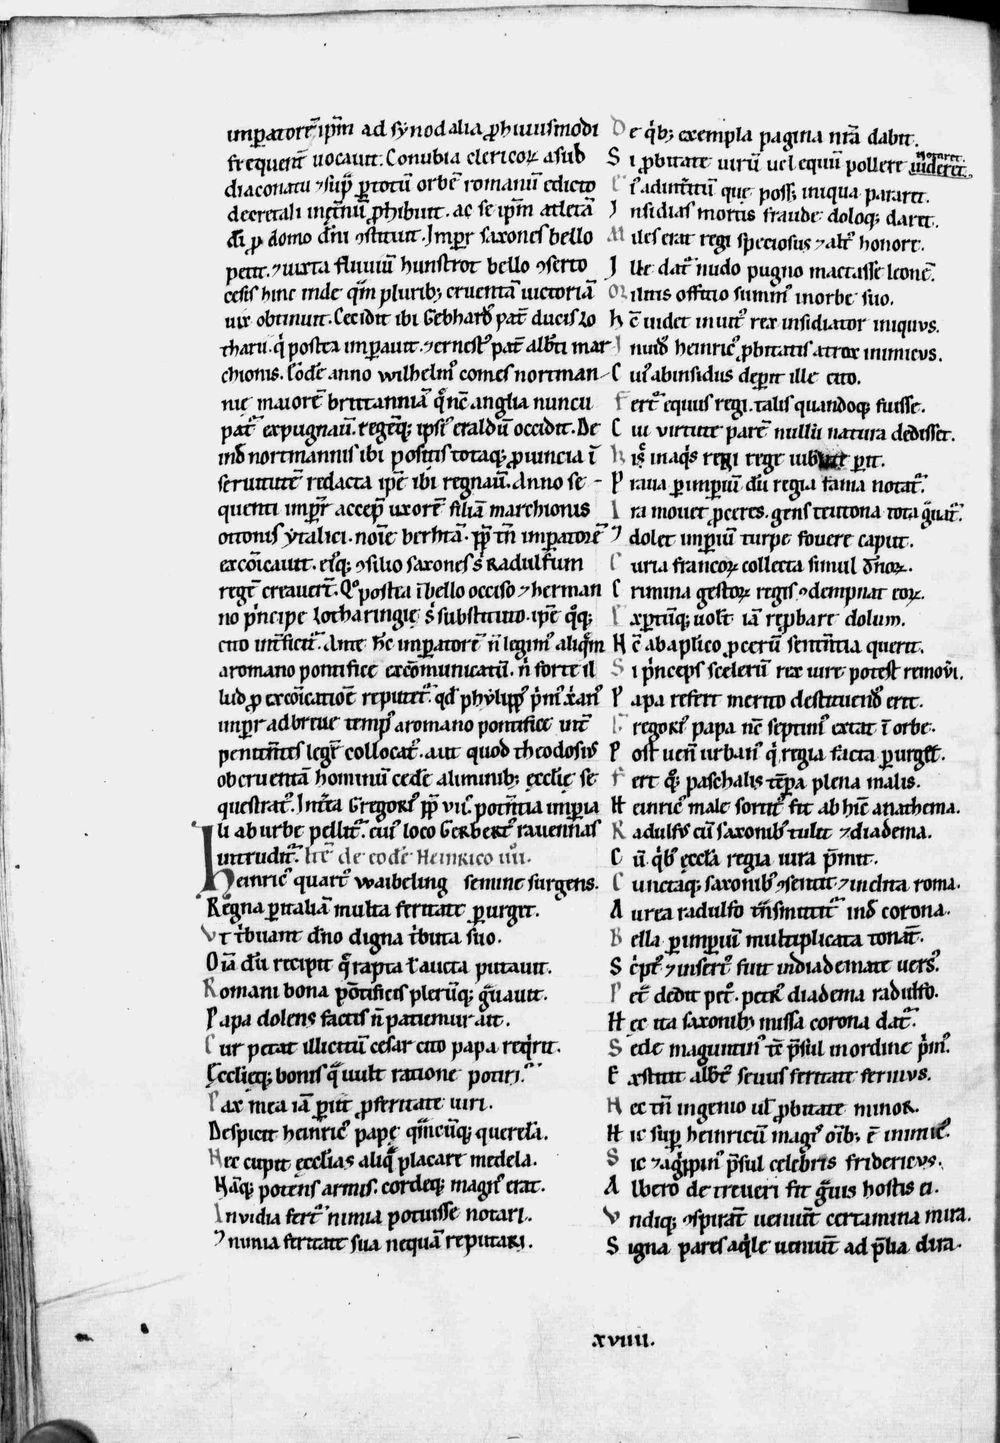 imꝑatorē ip̄m ad sẏnodalia ꝓ huiusmodi
frequent̄ uocauit. Conubia clericoꝝ asub
diaconatu ⁊ sup̄ ꝑ totū orbē romanū edicto
decretali inet̄nū ꝓhibuit. ac se ip̄m atletā
dī ꝓ domo dn̄i ꝯstituit. Imꝑr saxones bello
petit. ⁊ iuxta fluuiū hunstrot bello ꝯserto
cesis hinc inde qͣm pluribꝫ cruentā uictoriā
uix obtinuit. Cecidit ibi Gebhardꝰ pat̄ ducis Lo
tharii. qͥ postea imꝑauit. ⁊ ernestꝰ pat̄ alb̄ti mar
chionis. Eodē anno wilhelmꝰ comes nortman
nię maiorē brittanniā q̄ nc̄ anglia nuncu
pat᷑ expugnauit. regēqꝫ ipsiꝰ eraldū occidit. De
ind̄ nortmannis ibi positis totaqꝫ ꝓuincia ī
seruitutē redacta ip̄e ibi regnauit. Anno se
quenti imꝑr accep̄ uxorē filiā marchionis
ottonis ẏtalici. noīe berhtā. pp̄ tn̄ imꝑatorē
excōicauit. eiꝰqꝫ ꝯsilio saxones s̄ Radulfum
regē creauert̄. Qͦ postea ī bello occiso ⁊ herman
no pͥncipe Lotharingię s̄ substituto. ip̄e qͦqꝫ
cito int̄ficit᷑. Ante hc̄ imꝑatorē n̄ legimꝰ aliqͣm
a romano pontifice excōmunicatū. n̄ forte il
lud ꝓ excōicatiōe reputet᷑. qd̄ phẏlippꝰ pͥmꝰ xp̄anꝰ
imꝑr ad breue tempꝰ a romano pontifice int̄
penitentes leget᷑ collocatꝰ. aut quod theodosius
ob cruentā hominū cedē a liminibꝫ ęcclię se
questratꝰ. Int̄ea Gregoriꝰ pp̄ viiꝰ. potn̄tia imꝑia
li ab urbe pellit᷑. cuiꝰ loco Gerbertꝰ rauennas
intrudit᷑. Itē de eodē Heinrico iiii.
Heinricꝰ quartꝰ waibeling semine surgens.
Regna ꝑ italiā multa feritate ꝑurget.
Vt tͥbuant dn̄o digna tͥbuta suo.
Oīa dū recipit q̄ rapta ł aucta putauit.
Romani bona pōtificis plerūqꝫ gͣuauit.
Papa dolens factis n̄ patiemur ait.
Cur petat illicitū cesar cito papa reqͥrit.
Ęcclięqꝫ bonis qͣ uult ratione potiri.
Pax mea iā ꝑiit ꝓ feritate uiri.
Despicit heinricꝰ papę qͣmcūqꝫ querelā.
Nec cupit ęccłias aliqͣ placare medela.
Nāqꝫ potens armis. cordeqꝫ magnꝰ erat.
Inuidia fert᷑ nimia potuisse notari.
⁊ nimia feritate sua nequā reputari.
De qͥbꝫ exempla pagina nrā dabit.
Si ꝓbitate uirū uel equū pollere uideret. notaret.
Ei ꝰ adinteritū quę possꝫ iniqua pararet.
Insidias mortis fraude doloqꝫ daret.
Miles erat regi speciosus ⁊ alt᷑ honore.
Ille dat᷑ nudo pugno mactasse leonē.
Militis offitio summꝰ in orbe suo.
Hc̄ uidet inuitꝰ rex insidiator iniquus.
Inuid heinricꝰ ꝓbitatis atrox inimicus.
Cuiꝰ ab insidiis deꝑit ille cito.
Fert᷑ equus regi. talis quandoqꝫ fuisse.
Cui virtute parē nullū natura dedisset.
Prauа ꝑ imꝑiū dū regia fama notat᷑.
Ira mouet ꝓceres. gens teutona tota gͣuat᷑.
⁊ dolet imꝑiū turpe fouere caput.
Curia francoꝝ collecta simul dn̄oꝝ.
Crimina gestoꝝ regis ꝯdempnat eoꝝ.
Exꝑtūqꝫ uolt᷑ iā reꝓbare dolum.
Hc̄ ab aplico ꝓcerū sentn̄tia querit.
Si pͥnceps scelerū rex iure potest remoūi.
Papa refert merito destituendꝰ erit.
Gregoriꝰ papa nc̄ septimꝰ extat ī orbe.
Post uenit urbanꝰ qͥ regia facta ꝑurget.
Fert qͦqꝫ paschalis tēpa plena malis.
Heinricꝰ male sortitꝰ fit ab hinc anathema.
Radulfꝰ cū saxonibꝰ tulit ⁊ diadema.
Cū qͥbꝰ ęccłā regia iura p̄mit.
Cunctaqꝫ saxonibꝰ ꝯsentit ⁊ inclita roma.
Aurea radulfo tn̄smittit᷑ ind̄ corona.
Bella ꝑ imꝑiū multiplicata tonat̄.
Scͥptꝰ ⁊ insertꝰ fuit in diademate uersꝰ.
Pet̄ dedit petͦ. petrꝰ diadema radulfo.
Hec ita saxonibꝫ missa corona dat᷑.
Sede maguntinꝰ tē p̄sul in ordine pͥmꝰ.
Extitit alb̄tꝰ seuus feritate feriuus.
Nec tn̄ ingenio uł ꝓbitate minor.
Hic suꝑ heinricū magiꝰ oīb; ē inimicꝰ.
Sic ⁊ agͥppinꝰ p̄sul celebris fridericus.
Albero de treueri fit gͣuis hostis ei.
Vndiqꝫ ꝯspirat̄ ueniūt certamina mira.
Signa pares aqͥle ueniūt ad p̄lia dira.
xviiii.